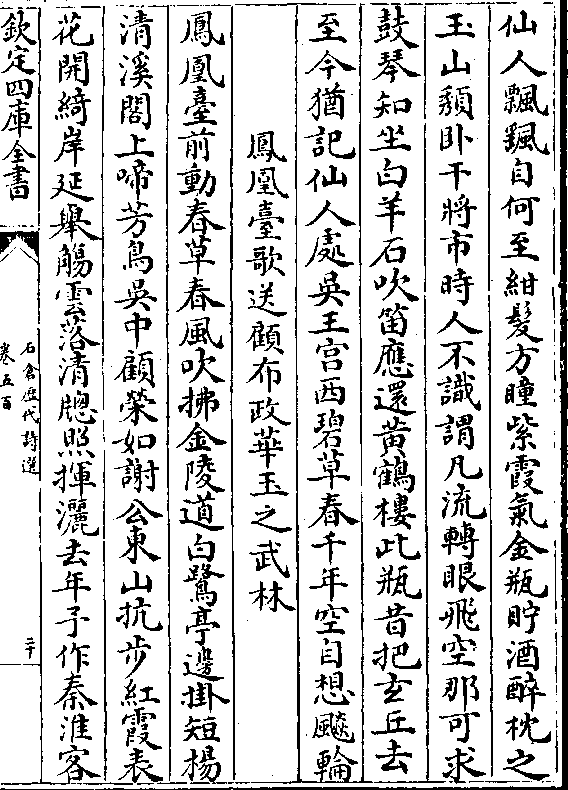 仙人飄颻自何至紺髮方瞳紫霞氣金瓶貯酒醉枕之
玉山頹卧干將市時人不識謂凡流轉眼飛空那可求
鼓琴知坐白羊石吹笛應還黃鶴樓此瓶昔把玄丘去
至今猶記仙人處吳王宫西碧草春千年空自想飈輪
鳳凰臺歌送顧布政華玉之武林
鳳凰臺前動春草春風吹拂金陵道白鷺亭邊掛短楊
清溪閣上啼芳鳥吳中顧榮如謝公東山抗步紅霞表
花開綺岸延舉觴雲落清牎照揮灑去年子作秦淮客
欽定四庫全書
石倉歷代詩選
卷五百
二十